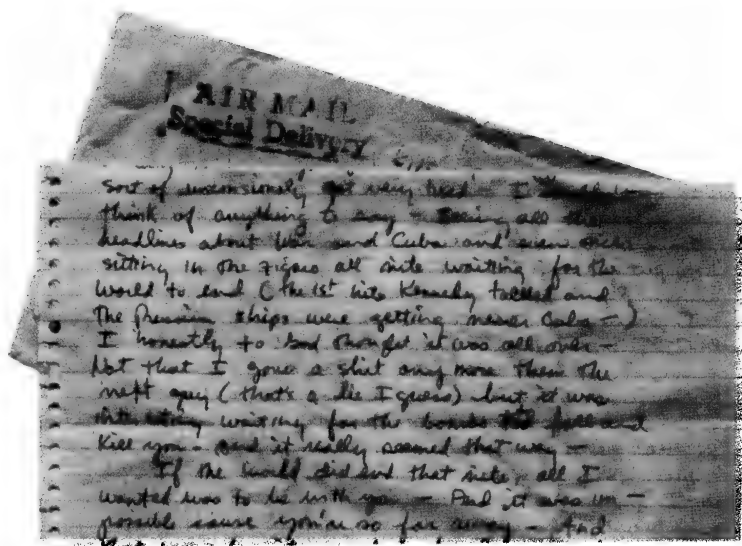 AIR MAIL
Special Delivery
sort of
think of anything to say – seeing all the
headlines about War and Cuba and even once
sitting in the Figaro all nite waiting for the
world to end (the 1st nite Kennedy talked and
the Russian ships were getting nearer Cuba –)
I honestly to God thought it was all over –
Not that I gave a shit any more than the
next guy (that's a lie I guess) but it was
interesting waiting for the bombs to fall and
kill you – and it really seemed that way –
If the world did end that nite, all I
wanted was to be with you – And it was im –
possible cause you're so far away – And